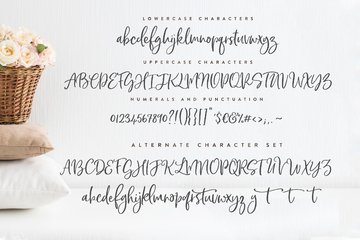 LOWERCASE CHARACTERS
abcdefghijklmnopqrstuvwxyz
UPPERCASE CHARACTERS
ABCDEFGHIJKLMNOPQRSTUVWXYZ
NUMERALS AND PUNCTUATION
01234567890?!(){}[]"$@&%#<>;,.~
ALTERNATE CHARACTER SET
ABCDEFGHIJKLMNOPQRSTUVWXYZ
abcdefghijklmnopqrstuvwxyz y t t t